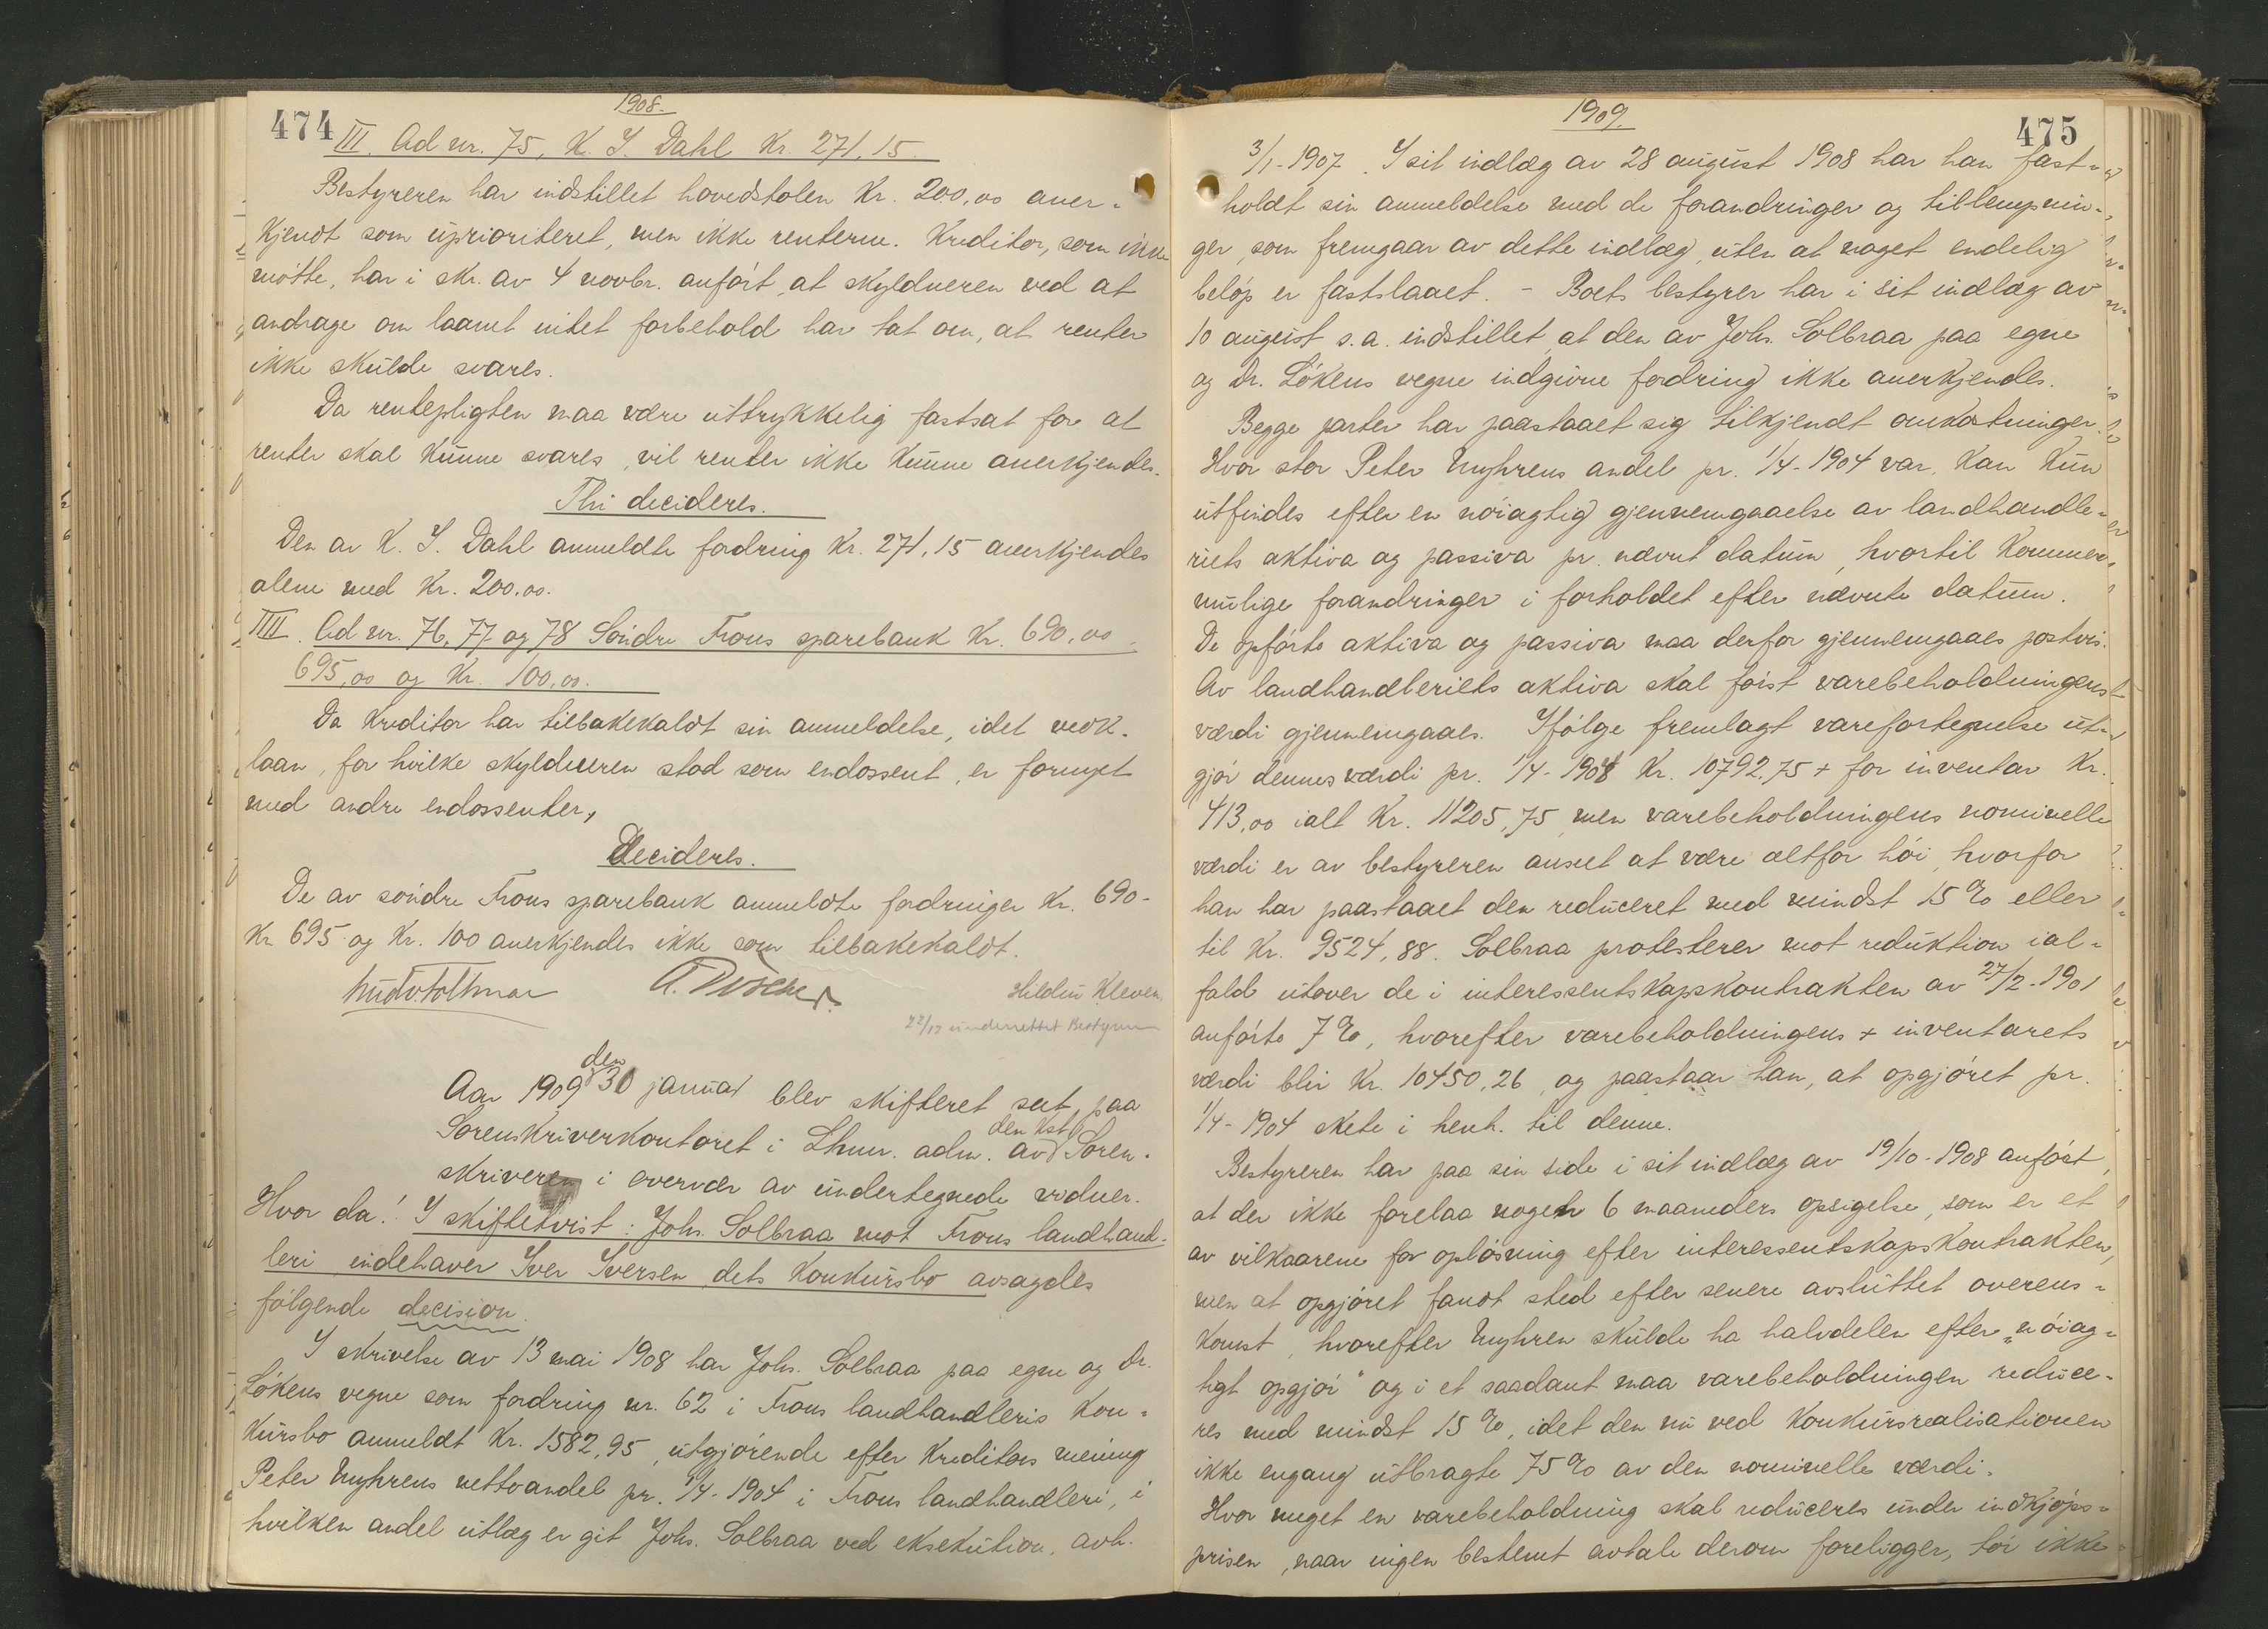 474
1908.
III. Ad nr. 75, K. J. Dahl Kr. 271,15.
Bestyreren har indstillet hovedstolen Kr. 200,00 aner-
kjendt som uprioritert, men ikke renterne. Kreditor, som ikke
møtte, har i skr. av 4 novbr. anført at skyldneren ved at
andrage om laanet intet forbehold har tat om, at renter
ikke skulde svares.
Da rentepligten maa være uttrykkelig fastsat for at
renter skal kunne svares, vil renter ikke kunne anerkjendes.
Thi decideres.
Den av K. J. Dahl anmeldte fordring Kr. 271,15 anerkjendes
alene med Kr. 200.00.
IIII. Ad nr. 76, 77 og 78 Søndre Frons sparebank Kr. 690,00,
695,00 og Kr. 100,00.
Da kreditor har tilbakekaldt sin anmeldelse, idet vedk.
laan, for hvilke skyldneren stod som endossent, er fornyet
med andre endossenter,
Decideres.
De av søndre Frons sparebank anmeldte fordringer Kr. 690-
Kr 695 og Kr. 100 anerkjendes ikke som tilbakekaldt.
Hildin Kleven.
22/12 underrettet Bestyreren
den
Aar 1909 30 januar blev skifteret sat paa
Sorenskriverkontoret i Lhmr. adm. av den Kst. Soren-
skriveren i overvær av undertegnede vidner.
Hvor da! I skiftetvist: Johs. Solbraa mot Frons landhand-
leri indehaver Iver Iversen dets konkursbo avsagdes
følgende decision.
I skrivelse av 13 mai 1908 har Johs. Solbraa paa egne og Dr.
Løkens vegne som fordring nr. 62 i Frons landhandleris kon-
kursbo anmeldt Kr. 1582,95, utgjørende efter kreditors mening
Peter Myhrens nettoandel pr. 1/4-1904 i Frons landhandleri, i
hvilken andel utlæg er git Johs. Solbraa ved eksekution, avh.
1909.
475
3/1-1907. I sit indlæg av 28 august 1908 har han fast-
holdt sin anmeldelse med de forandringer og tillempnin-
ger, som fremgaar av dette indlæg, uten at noget endelig
beløp er fastslaaet. - Boets bestyrer har i sit indlæg av
10 august s.a. indstillet at den av Johs. Solbraa paa egne
og Dr. Løkens vegne indgivne fordring ikke anerkjendes.
Begge parter har paastaaet sig tilkjendt omkostninger.
Hvor stor Peter Myhrens andel pr. 1/4-1904 var, kan kun
utfindes efter en nøiagtig gjennemgaaelse av landhandle-
riets aktiva og passiva pr. nævnt datum, hvortil kommer
mulige forandringer i forholdet efter nævnte datum.
De opførte aktiva og passiva maa derfor gjennemgaaes postvis.
Av landhandleriets aktiva skal først varebeholdningens
værdi gjennemgaaes. Ifølge fremlagt varefortegnelse ut-
gjør dennes værdi pr. 1/4-1904 Kr. 10792,75 + for inventar Kr.
413,00 ialt Kr. 11205,75, men varebeholdningens nominelle
værdi er av bestyreren anseet at være altfor høi, hvorfor
han har paastaaet den reduceret med mindst 15 % eller
til Kr. 9524,88. Solbraa protesterer mot reduktion ial-
fald utover de i interessentskapskontrakten av 27/2-1901
anførte 7 %, hvorefter varebeholdningens + inventarets
værdi blir Kr. 10450,26, og paastaar han, at opgjøret pr.
1/4-1904 skete i henh. til denne.
Bestyreren har paa sin side i sit indlæg av 19/10-1908 anført,
at der ikke forelaa nogen 6 maaneders opsigelse, som er et
av vilkaarene for opløsning efter interessentskapskontrakten,
men at opgjøret fandt sted efter senere avsluttet overens-
komst, hvorefter Myhren skulde ha halvdelen efter "nøiag-
tigt opgjør" og i et saadant maa varebeholdningen reduce-
res med mindst 15 %, idet den nu ved konkursrealisationen
ikke engang utbragte 75 % av den nominelle værdi.
Hvor meget en varebeholdning skal reduceres under indkjøps-
prisen, naar ingen bestemt avtale derom foreligger, tør ikke